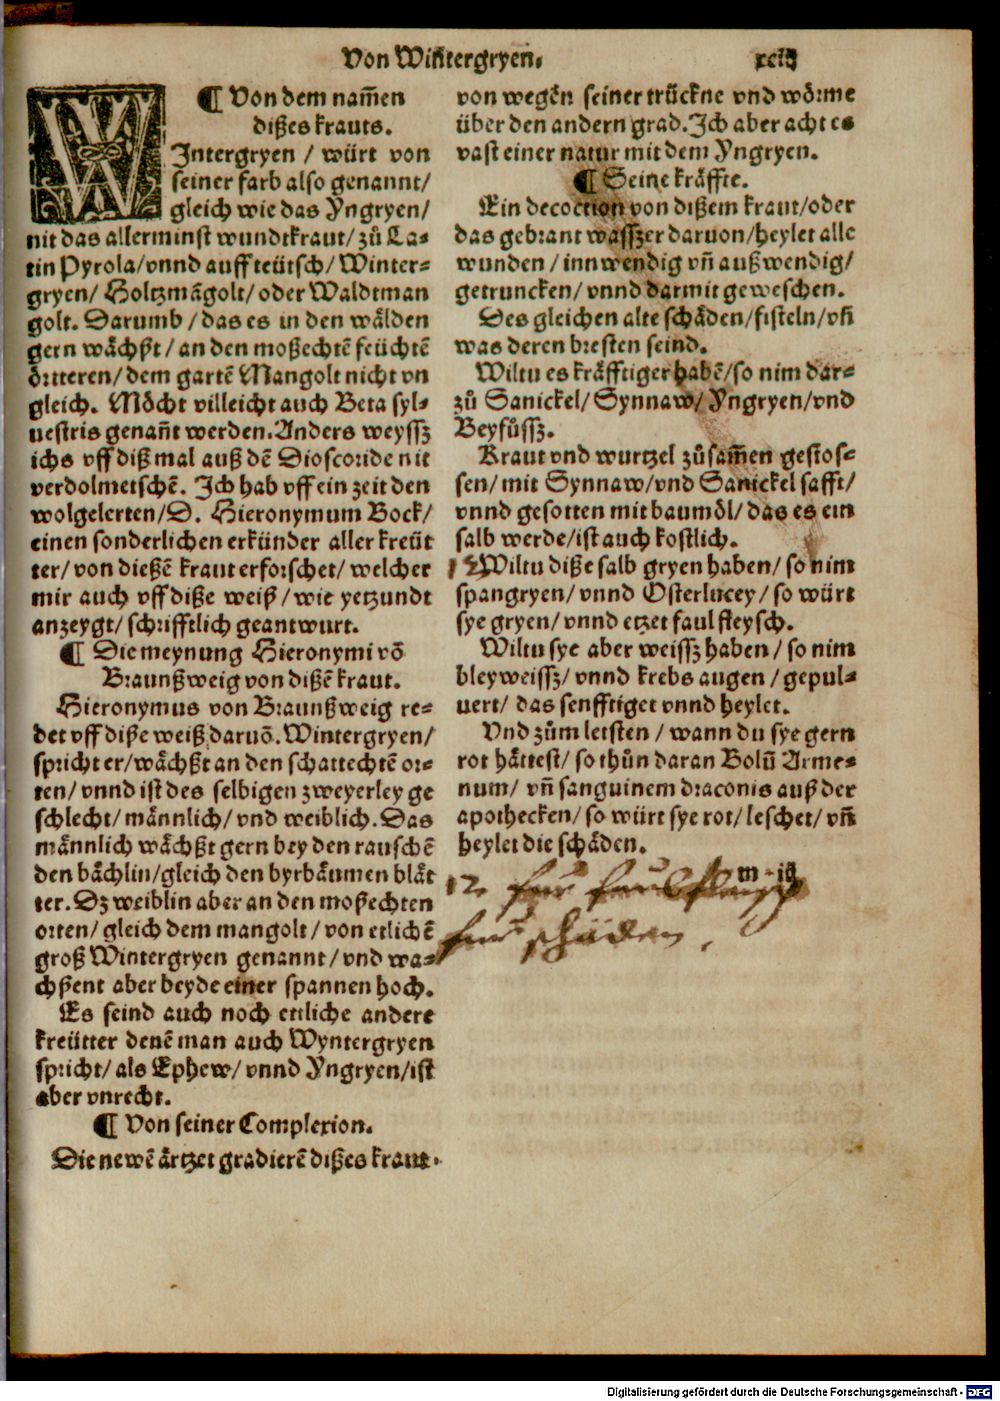 Von Wintergryen.
xciij
¶ Von dem nam̃en
dißes krauts.
WIntergryen / würt von
seiner farb also genannt/
gleich wie das Yngryen/
nit das allerminst wundtkraut/ zů La-
tin Pyrola/vnnd auff teütsch/ Winter-
gryen/ Holtzmãgolt/ oder Waldtman
golt. Darumb / das es in den wälden
gern wächßt / an den moßechtẽ feüchtẽ
örtteren/ dem gartẽ Mangolt nicht vn
gleich. Möcht villeicht auch Beta syl-
uestris genañt werden. Anders weyssz
ichs vff diß mal auß dẽ Dioscoride nit
verdolmetschẽ. Ich hab vff ein zeit den
wolgelerten/ D. Hieronymum Bock/
einen sonderlichen erkünder aller kreüt
ter/ von dießẽ kraut erforschet/ welcher
mir auch vff diße weiß / wie yetzundt
anzeygt/ schrifftlich geantwurt.
¶ Die meynung Hieronymi võ
Braunßweig von dißẽ kraut.
Hieronymus von Braunßweig re-
det vff diße weiß daruõ. Wintergryen/
spricht er/ wächßt an den schattechtẽ or-
ten/ vnnd ist des selbigen zweyerley ge
schlecht/ männlich/ vnd weiblich. Das
männlich wächßt gern bey den rauschẽ
den bächlin/gleich den byrbäumen blät
ter. Dz weiblin aber an den moßechten
orten/ gleich dem mangolt / von etlichẽ
groß Wintergryen genannt/ vnd wa-
chßent aber beyde einer spannen hoch.
Es seind auch noch ettliche andere
kreütter denẽ man auch Wyntergryen
spricht/ als Ephew/ vnnd Yngryen/ist
aber vnrecht.
¶ Von seiner Complexion.
Die newẽ ärtzet gradierẽ dißes kraut
von wegẽn seiner trückne vnd wörme
über den andern grad. Ich aber acht es
vast einer natur mit dem Yngryen.
¶ Seine kräffte.
Ein decoction von dißem kraut/oder
das gebrant wasszer daruon/heylet alle
wunden / innwendig vñ außwendig/
getruncken/ vnnd darmit geweschen.
Des gleichen alte schäden/fisteln/vñ
was deren bresten seind.
Wiltu es kräfftiger habẽ/so nim dar-
zů Sanickel/ Synnaw/ Yngryen/vnd
Beyfůssz.
Kraut vnd wurtzel zůsam̃en gestos-
sen/ mit Synnaw/vnd Sanickel safft/
vnnd gesotten mit baumöl/ das es ein
salb werde/ist auch kostlich.
12 Wiltu diße salb gryen haben/ so nim
spangryen/ vnnd Osterlucey/ so würt
sye gryen/ vnnd etzet faul fleysch.
Wiltu sye aber weissz haben / so nim
bleyweissz/ vnnd krebs augen / gepul-
uert/ das senfftiget vnnd heylet.
Vnd zům letsten / wann du sye gern
rot hättest/ so thůn daran Bolũ Arme-
num/ vñ sanguinem draconis auß der
apothecken/ so würt sye rot/ leschet/ vñ
heylet die schäden.
m ij
12 fur faul fleysch
fur schäden.
Digitalisierung gefördert durch die Deutsche Forschungsgemeinschaft - DFG